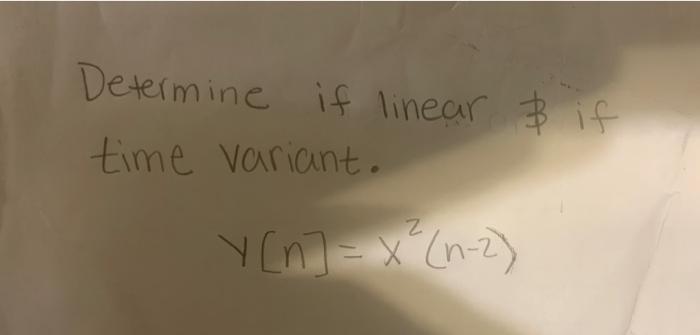 Determine if linear & if
time variant.
y[n] = x²(n-2)